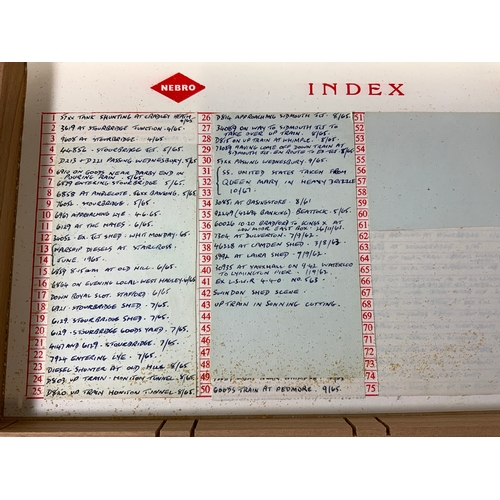 NEBRO
INDEX
1 57XX TANK SHUNTING AT CRADLEY HEATH 4/65
2 3619 AT STOURBRIDGE JUNCTION. 4/65.
3 9008 AT STOURBRIDGE 4/65.
4 STOURBRIDGE 5/65.
5 D213 + D221 PASSING WEDNESBURY. 5/65
6 ON GOODS NEAR DARBY END IN
POURING RAIN. 5/65.
7 6879 ENTERING STOURBRIDGE 5/65.
8 6858 AT AMBLECOTE. BANKING. 5/65
9 STOURBRIDGE. 5/65.
10 6961 APPROACHING LYE. 4.6.65.
11 6129 AT THE HAYES. 6/65.
12 SHED. WHIT MONDAY. 65
13 WARSHIP DIESELS AT STARCROSS.
14 JUNE. 1965.
15 6959 8.15 am AT OLD HILL. 6/65.
16 6964 ON EVENING LOCAL WEST HAGLEY 6/65
17 DOWN ROYAL SCOT. STAFFORD 6/65
18 6921. STOURBRIDGE SHED. 7/65.
19 6129. STOURBRIDGE SHED. 7/65.
20 6129. STOURBRIDGE GOODS YARD. 7/65.
21 4147 AND 6129. STOURBRIDGE. 7/65.
22 7924 ENTERING LYE. 7/65.
23 DIESEL SHUNTER AT OLD HILL 8/65
24 D809 UP TRAIN. HONITON TUNNEL. 8/65.
25 D820 UP TRAIN HONITON TUNNEL. 8/65.
26 D814 APPROACHING SIDMOUTH JCT. 8/65.
27 34089 ON WAY TO SIDMOUTH JCT TO
TAKE OVER UP TRAIN. 8/65.
28 D815 ON UP TRAIN AT WHIMPLE. 8/65.
29 HAVING COME OFF DOWN TRAIN AT
SIDMOUTH JCT. EN ROUTE TO 8/65
30 57XX PASSING WEDNESBURY. 9/65.
31 SS. UNITED STATES TAKEN FROM
32 QUEEN MARY IN HEAVY DRIZZLE
33 10/67.
34 3085 AT BASINGSTOKE. 8/61
35 42269 (42214 BANKING) BEATTOCK. 5/65.
36 60026 10.20 BRADFORD TO KINGS X AT
37 7306 AT DULVERTON. 7/9/63.
38 46228 AT CAMDEN SHED. 3/8/63
39 5992 AT LAIRA SHED. 7/9/62.
40 30935 AT VAUXHALL ON 9.42 WATERLOO
TO LYMINGTON PIER. 1/9/62.
41 EX L.S.W.R. 4.4.0 No 563.
42 SWINDON SHED SCENE
43 UP TRAIN IN SONNING CUTTING.
44
45
46
47
48
49
50 GOODS TRAIN AT PEDMORE. 9/65.
51
52
53
54
55
56
57
58
59
60
61
62
63
64
65
66
67
68
69
70
71
72
73
74
75